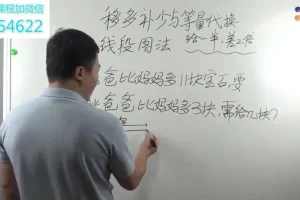 课程加微信
54622
移多补少与等量代换
线段图法 给一半,差2倍
爸比妈妈多11块宝石,要
爸爸比妈妈多3块,需给几块?